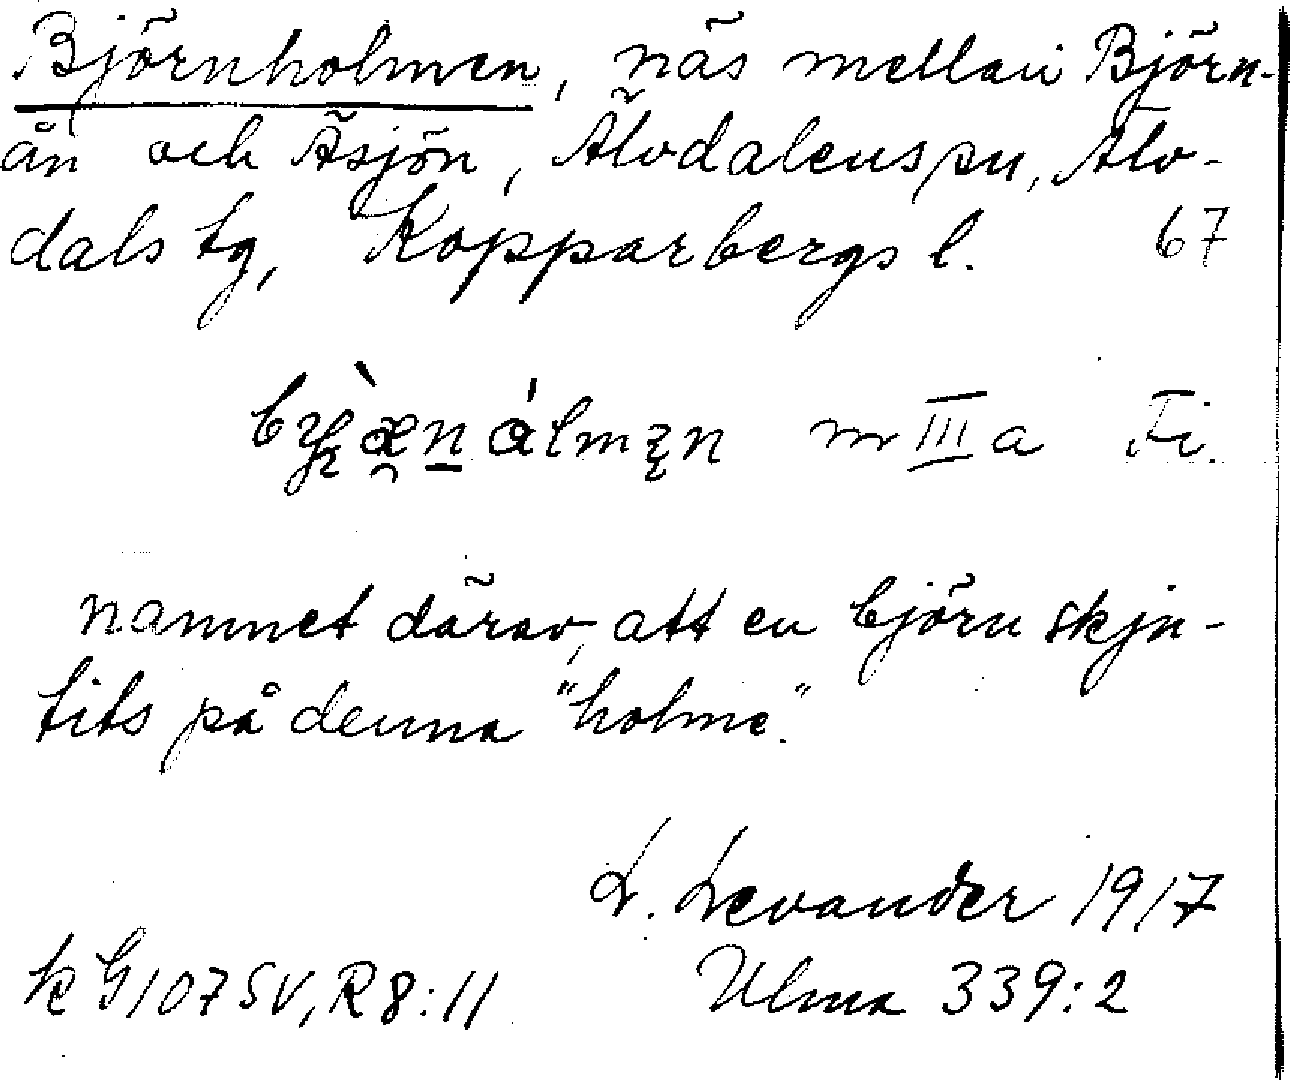 Björnholmen, näs mellan Björn-
ån och Äsjön, Älvdalens sn, Älv-
dals tg, Kopparbergs l. 67
m III a Fi.
namnet därav, att en björn skju-
tits på denna "holme".
L. Levander 1917
k G107SV, R8:11 Ulma 339:2